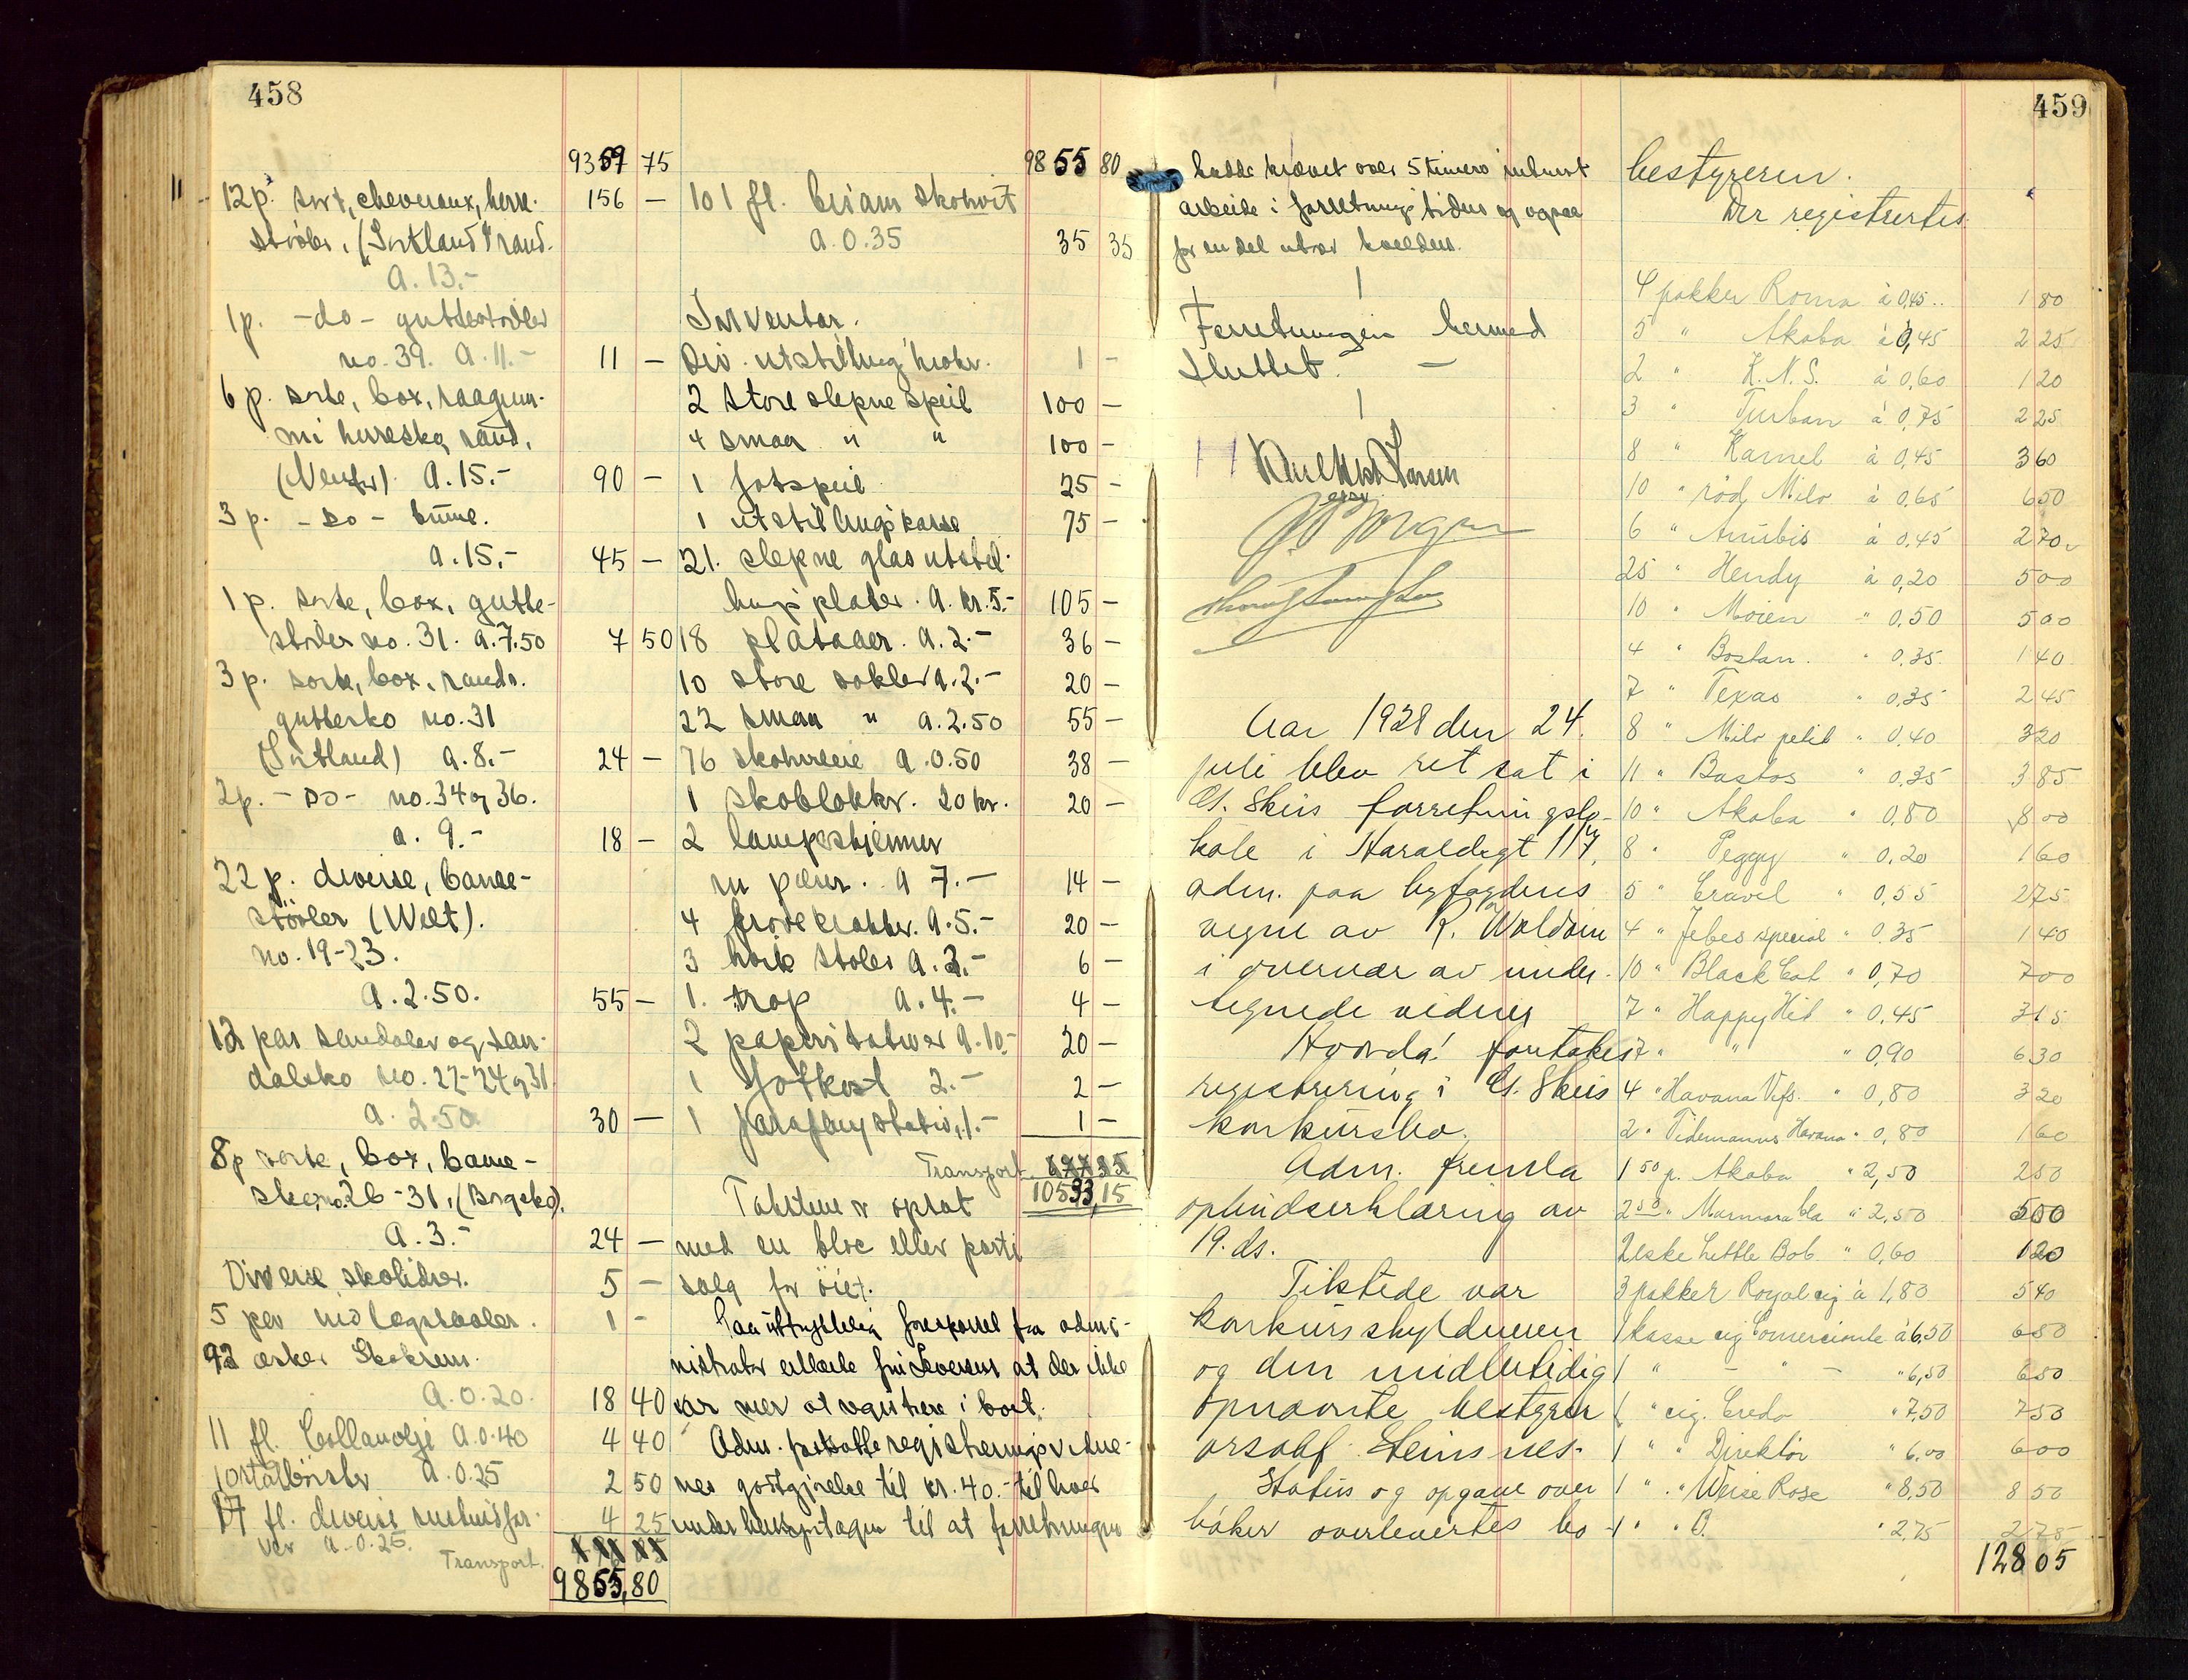 458
9359 75
12 p. sort, chevraux, herre- 156 -
støvler, ("Sortland") rand.
a. 13.-
1 p. -do- guttestøvler
no. 39. a. 11.- 11 -
6 p. sorte, box, raagum-
mi herresko, rand.
a. 15.- 90 -
3 p. -do- brune.
a. 15.- 45 -
1 p. sorte, box, gutte-
støvler no. 31. a. 7.50 7 50
3 p. sorte, box, rands.
guttesko no. 31
(Sortland) a. 8.- 24 -
2 p. -do- no. 34 og 36.
a. 9.- 18 -
22 p. diverse, barne-
støvler (Welt).
no. 19-23.
a. 2.50. 55 -
12 par sandaler og san-
dalsko no. 22-24 og 31
a. 2.50 30 -
8 p sorte, box, barne-
sko, no. 26-31,
a. 3.- 24 -
Diverse skolisser. 5 -
5 par 1 -
92 æsker Skokrem.
a. 0.20. 18 40
11 fl. Collanolje a. 0.40 4 40
10 a. 0.25 2 50
17 fl. diverse 4 25
a. 0.25.
Transport.
9855,80
9855 80
101 fl. skohvit
a. 0.35 35 35
Inventar.
Div. utstilling 1 -
2 store slepne speil 100 -
4 smaa " " 100 -
1 fotspeil 25 -
1 utstillingskasse 75 -
21. slepne glas utstil-
lings plater. a. kr. 5.- 105 -
18 platåer. a. 2.- 36 -
10 store sokler a. 2.- 20 -
22 smaa " a. 2.50 55 -
76 a. 0.50 38 -
1 20 kr. 20 -
2 lampeskjermer
m pærer. a 7.- 14 -
4 a. 5.- 20 -
3 stoler a. 2.- 6 -
1. trap a. 4.- 4 -
2 papirstativer a. 10.- 20 -
1 2.- 2 -
1 1.- 1 -
Transport
10593,15
Takstene er opsat
med en bloc eller parti
salg for øiet.
Paa uttrykkelig forespørsel fra admi-
nistrator erklærte at der ikke
var mer at registrere i boet.
Adm. fastsatte registreringsvidne-
nes godtgjørelse til kr. 40.- til hver
til at forretningen
459
hadde krævet over 5 timers intenst
arbeide i forretningstiden og ogsaa
for en del utover kvelden.
Forretningen hermed
sluttet.
Larsen
Aar 1928 den 24.
juli blev ret sat i
forretningslo-
kale i Haraldsgt 117,
adm. paa byfogdens
vegne av R. Waldom
i overvær av under-
tegnede vidner
Hvorda! foretokes
registrering i
konkursbo.
Adm. fremla
opbudserklæring av
19. ds.
Tilstede var
konkursskyldneren
og den midlertidig
opnævnte bestyrer
orsakf. Steinsnes.
Status og opgave over
bøker overlevertes bo-
bestyreren.
Der registrertes
4 pakker Roma à 0,45 1 80
5 " Akaba à 0,45 2 25
2 " H.N.S. à 0,60 1 20
3 " Turban à 0,75 2 25
8 " Kamel à 0,45 3 60
10 " rød Milo à 0,65 6 50
6 " Anubis à 0,45 2 70
25 " Hendy à 0,20 5 00
10 " Moien " 0,50 5 00
4 " Boston. " 0,35 1 40
7 " Texas " 0,35 2 45
8 " Milo petit " 0,40 3 20
11 " Bastos " 0,35 3 85
10 " Akaba " 0,80 8 00
8 " Peggy " 0,20 1 60
5 " Cravel " 0,55 2 75
4 " Jebes special " 0,35 1 40
10 " Black Cat " 0,70 7 00
7 " Happy Hit " 0,45 3 15
7 " " " 0,90 6 30
4 " Havana Vifs. " 0,80 3 20
2 " Tidemanns Havana " 0,80 1 60
1 50 p. Akaba " 2,50 2 50
2 50 " Marmora bla " 2,50 5 00
2 eske Little Bob " 0,60 1 20
3 pakker Royal cig à 1,80 5 40
1 kasse cig Comerciante à 6,50 6 50
1 " - " - " 6,50 6 50
1 " cig. Credo " 7,50 7 50
1 " " Direktør " 6,00 6 00
1 " " Weise Rose " 8,50 8 50
1 " " O. " 2,75 2 75
128 05